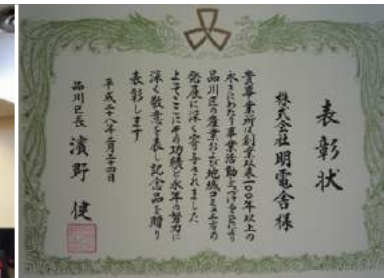 表彰状
株式会社 明電舎 様
貴事業所は創業以来一〇〇年以上の
永きにわたり事業活動をつづけることにより
品川区の産業および地域コミュニティの
発展に深く寄与されました
よってここにその功績と永年の努力に
深く敬意を表し記念品を贈り
表彰します
平成二十八年二月二十四日
品川区長 濱野 健